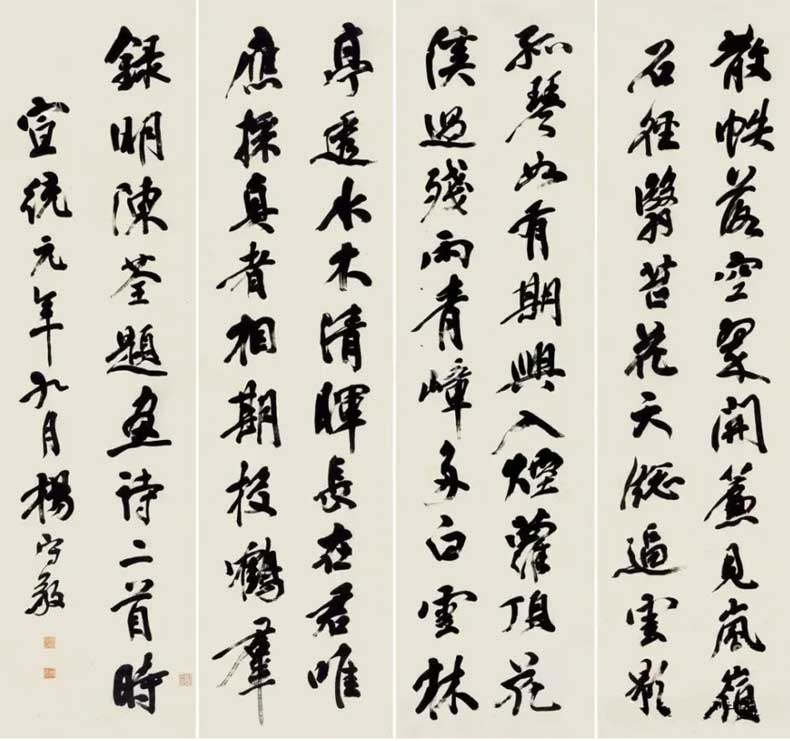 散帙落空翠開簾見嵐嶺
石徑翳苔花天牕逼雲影
孤琴如有期興入煙蘿頂花
溪過殘雨青嶂多白雲林
亭水木清暉長在君唯
應採真者相期投鶴羣
録明陳荃題畫詩二首時
宣統元年九月楊守敬